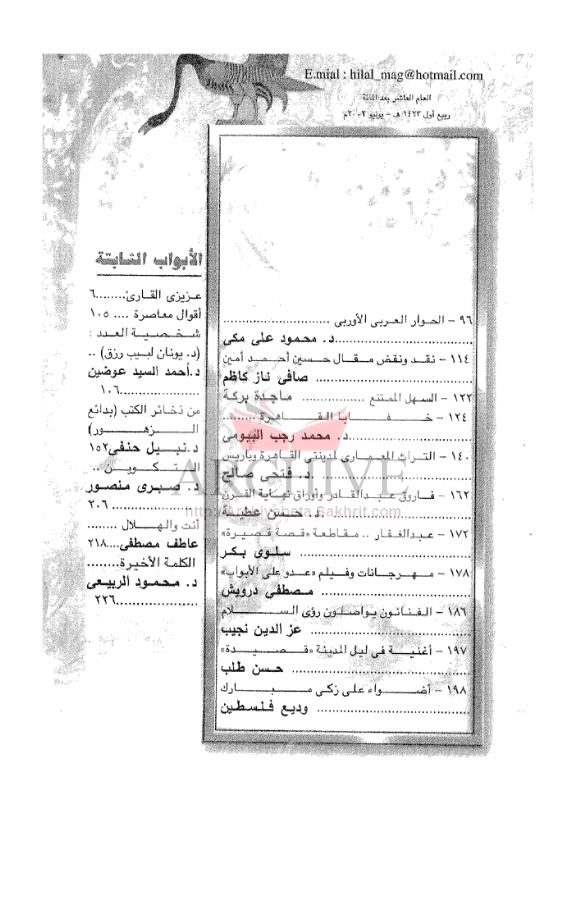 E.mial : hilal_mag@hotmail.com
العام العاشر بعد المائة
ربيع أول ١٤٢٣ هـ - يونيو ٢٠٠٢م
٩٦ - الحوار العربى الأوربى ..............................
.................................... د. محمود على مكى
١١٤ - نقد ونقض مقال حسين أحمد أمين
.................................... صافى ناز كاظم
١٢٢ - السهل الممتنع ................ ماجدة بركة
١٢٤ - خفايا القاهرة .........
.............................. د. محمد رجب البيومى
١٤٠ - التراث المعمارى لمدينتى القاهرة وباريس
.............................. د. فتحى صالح
١٦٢ - فاروق عبدالقادر وأوراق نهاية القرن
.............................. د. حسن عطية
١٧٢ - عبدالغفار .. مقاطعة «قصة قصيرة»
.............................. سلوى بكر
١٧٨ - مهرجانات وفيلم «عدو على الأبواب»
.............................. مصطفى درويش
١٨٦ - الفنانون يواصلون رؤى السلام
.............................. عز الدين نجيب
١٩٧ - أغنية فى ليل المدينة «قصيدة»
.............................. حسن طلب
١٩٨ - أضواء على زكى مبارك
.............................. وديع فلسطين
الأبواب الثابتة
عزيزى القارئ........٦
أقوال معاصرة .... ١٠٥
شخصية العدد :
(د. يونان لبيب رزق) ..
د.أحمد السيد عوضين
....................١٠٦
من ذخائر الكتب (بدائع
الزهور)
د.نبيل حنفى١٥٢
التكوين..
د. صبرى منصور
....................٢٠٦
أنت والهلال ........
عاطف مصطفى..٢١٨
الكلمة الأخيرة........
د. محمود الربيعى
....................٢٢٦
ARCHIVE
http://Archivebeta.Sakhrit.com